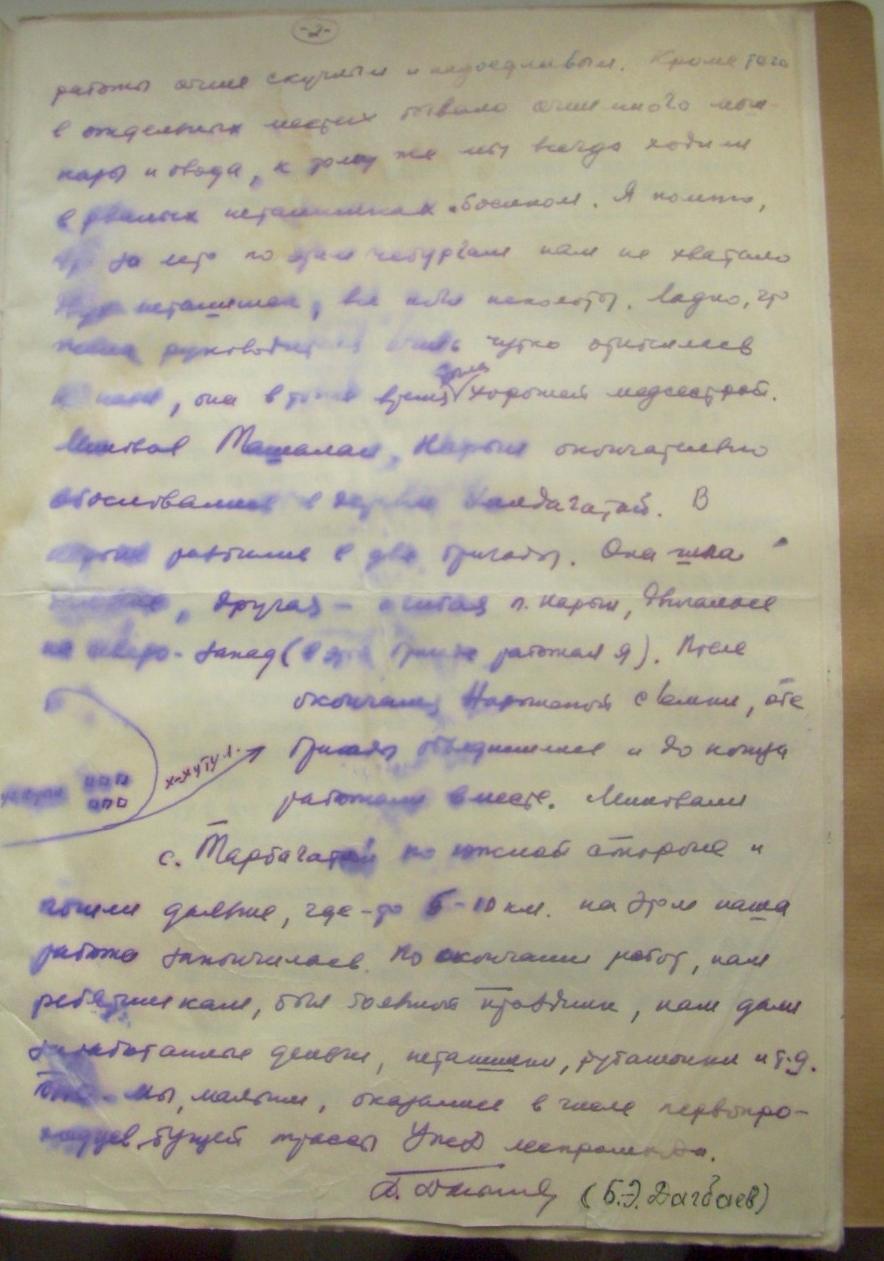 -2-
работы очень скучным и надоедливым. Кроме того
в отдельных местах бывало очень много мош-
кары и овода, к тому же мы всегда ходили
в рваных штанишках босиком. Я помню,
за лето по этим нам не хватало
штанишек, все ноги исколоты. Ладно, что
наша руководит очень чутко относилась
к нам, она в тоже время была хорошей медсестрой.
Миновав Нарын окончательно
обосновались в деревне Халдагатай. В
работали в две бригады. Одна шла
, другая - п. Нарын, двигалась
на северо-запад (в этой бригаде работал я). После
окончания Нарынской съемки, обе
бригады объединились и до конца
х-х УТУ 1.
работали вместе. Миновали
с. Тарбагатай по южной стороне и
пошли дальше, где-то 5-10 км. на этом наша
работа закончилась. По окончании работ, нам
ребятишкам, был большой праздник, нам дали
заработанные деньги, штанишки, рубашонки и т.д.
мы, малыши, оказались в числе первопро-
ходцев будущей трассы УЖД леспромхоза.
(Б.Э. Дагбаев)